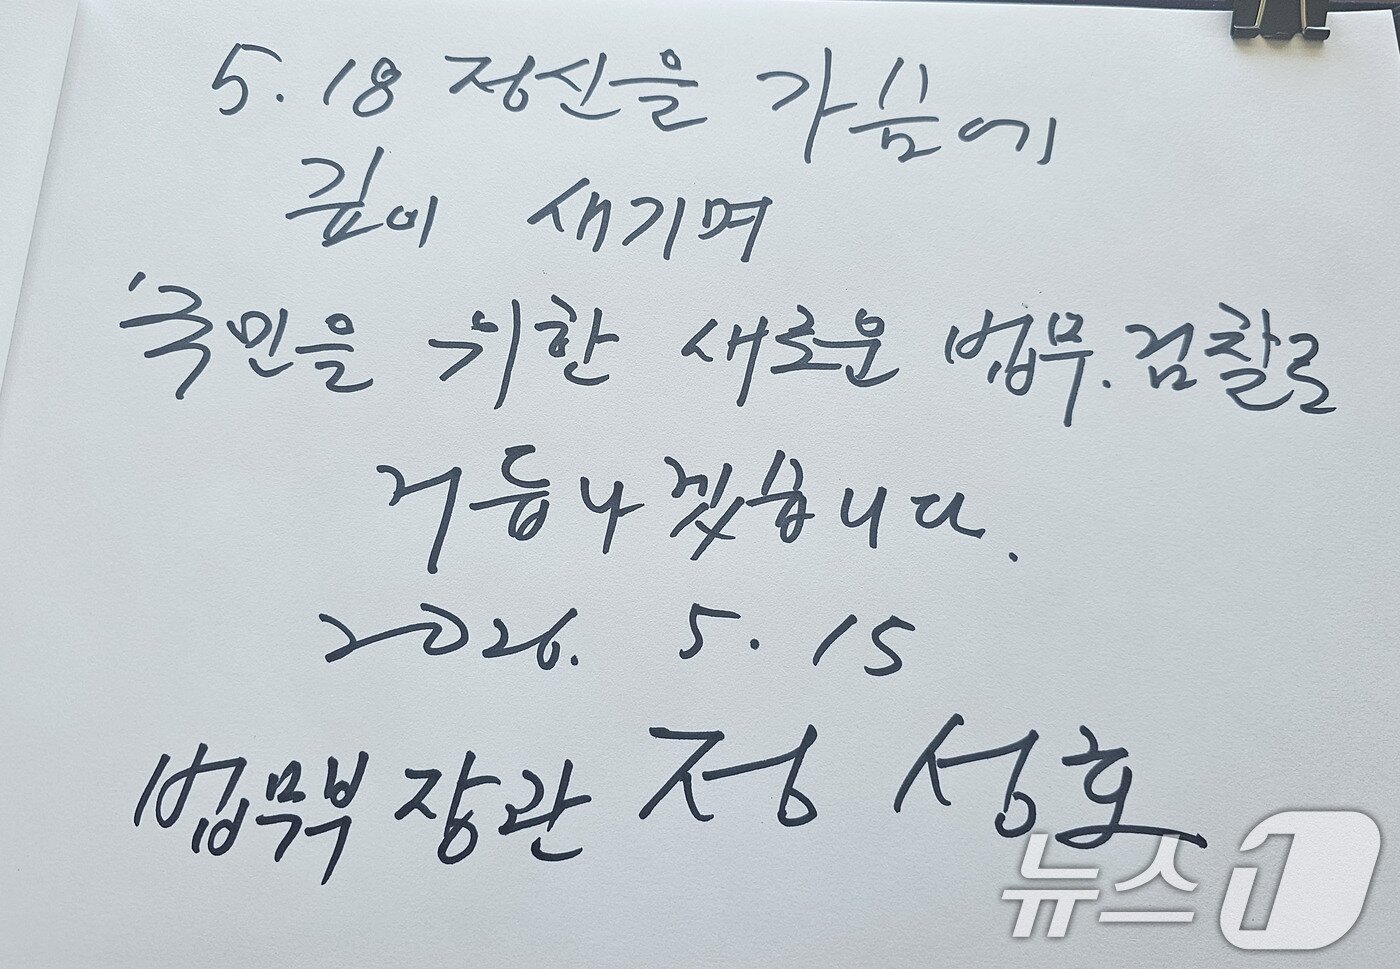 5.18 정신을 가슴에
깊이 새기며
'국민을 위한 새로운 법무.검찰로
거듭나겠습니다.
2026. 5. 15
법무부 장관 정성호
뉴스1